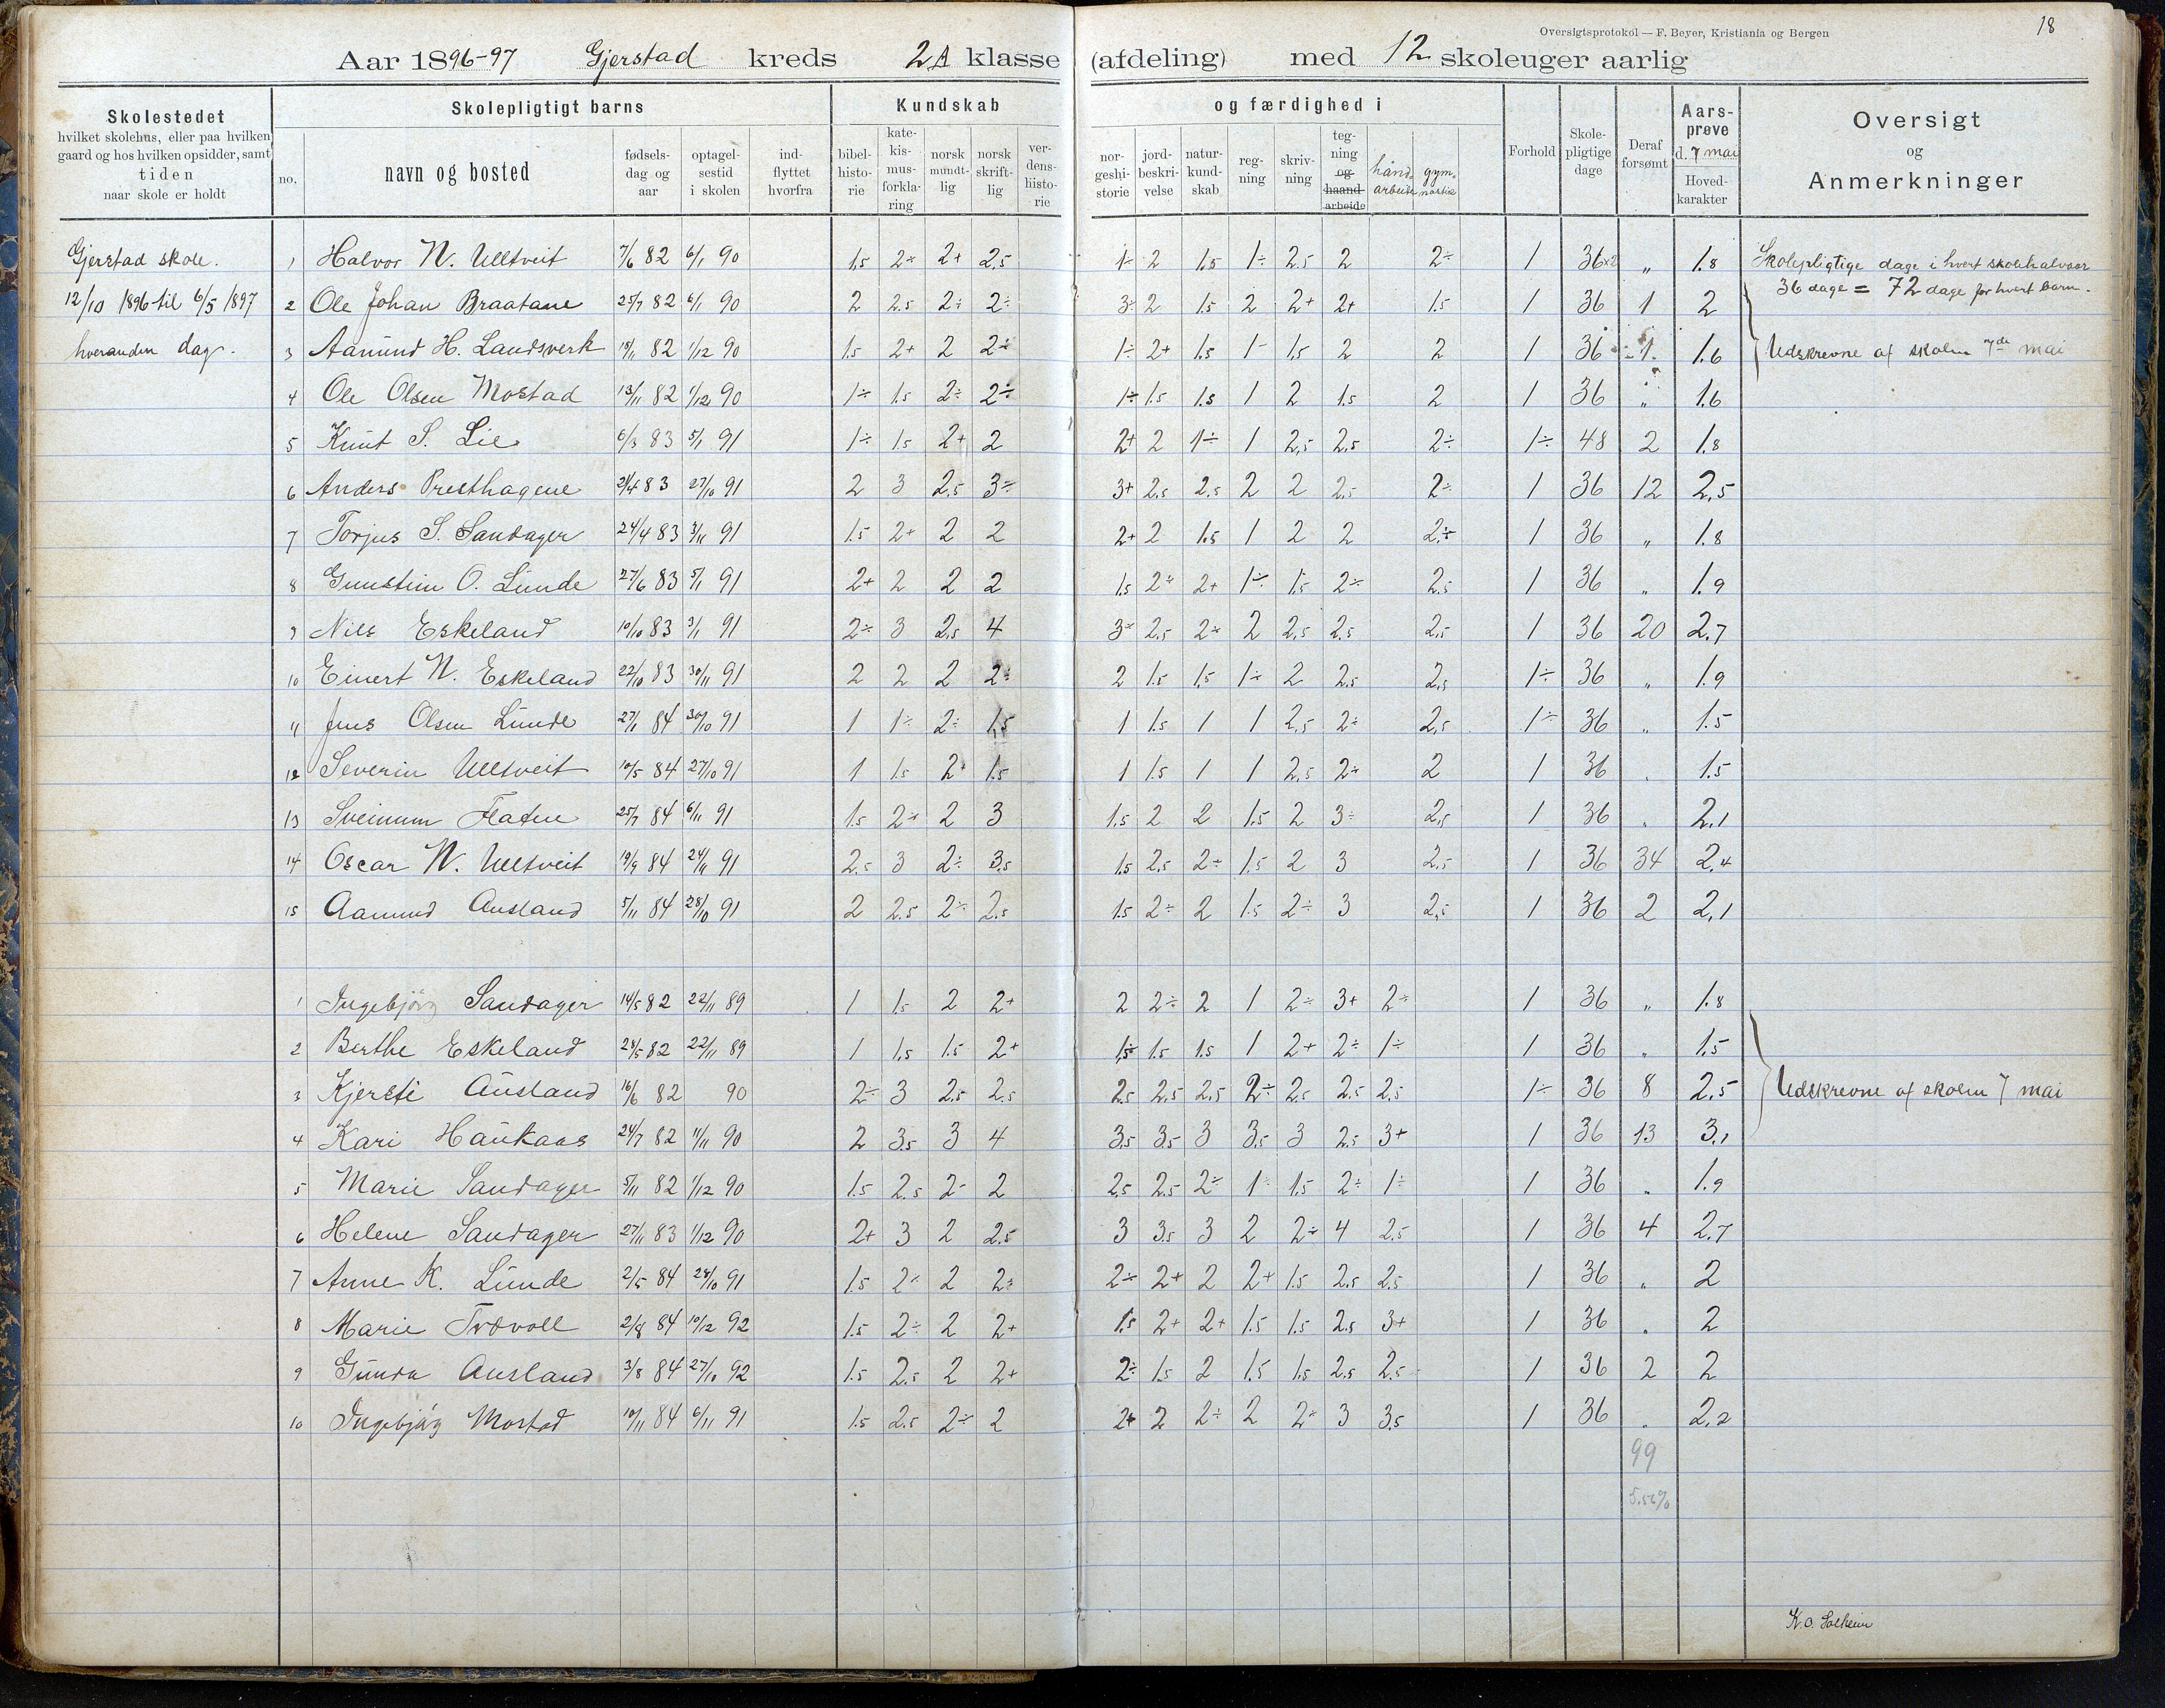 Oversigtsprotokol — F. Beyer, Kristiania og Bergen
18
Aar 1896-97 Gjerstad kreds 2A klasse (afdeling) med 12 skoleuger aarlig
Skolestedet
hvilket skolehus, eller paa hvilken
gaard og hos hvilken opsidder, samt
tiden
naar skole er holdt
Skolepligtigt barns
no.
navn og bosted
fødsels-
dag og
aar
optagel-
sestid
i skolen
ind-
flyttet
hvorfra
Kundskab
bibel-
histo-
rie
kate-
kis-
mus-
forkla-
ring
norsk
mundt-
lig
norsk
skrift-
lig
ver-
dens-
histo-
rie
og færdighed i
nor-
geshi-
storie
jord-
beskri-
velse
natur-
kund-
skab
reg-
ning
skriv-
ning
teg-
ning
og
haand-
arbeide
hånd-
arbeide
gym-
nastik
Forhold
Skole-
pligtige
dage
Deraf
forsømt
Aars-
prøve
d. 7 mai
Hoved-
karakter
Oversigt
og
Anmerkninger
Gjerstad skole.
12/10 1896 til 6/5 1897
hveranden dag.
1 Halvor N. Ulltveit 7/6 82 6/1 90 1,5 2÷ 2+ 2,5 1÷ 2 1,5 1÷ 2,5 2 2÷ 1 36×2 " 1.8
2 Ole Johan Braatane 25/7 82 6/1 90 2 2,5 2÷ 2÷ 3÷ 2 1,5 2 2+ 2+ 1,5 1 36 1 2
3 Aamund H. Landsverk 18/11 82 1/12 90 1,5 2+ 2 2÷ 1÷ 2+ 1,5 1- 1,5 2 2 1 36 1 1.6
4 Ole Olsen Mostad 13/11 82 1/12 90 1÷ 1,5 2÷ 2÷ 1÷ 1,5 1,5 1 2 1,5 2 1 36 " 1.6
5 Knut S. Lie 6/3 83 5/1 91 1÷ 1,5 2+ 2 2+ 2 1÷ 1 2,5 2,5 2÷ 1÷ 48 2 1.8
6 Anders Presthagene 21/4 83 27/10 91 2 3 2,5 3÷ 3+ 2,5 2,5 2 2 2,5 2÷ 1 36 12 2,5
7 Torjus S. Sandager 24/4 83 3/11 91 1,5 2+ 2 2 2+ 2 1,5 1 2 2 2÷ 1 36 " 1.8
8 Gunstein O. Lunde 27/6 83 5/1 91 2+ 2 2 2 1,5 2÷ 2+ 1÷ 1,5 2÷ 2,5 1 36 " 1.9
9 Nils Eskeland 10/10 83 3/1 91 2÷ 3 2,5 4 3÷ 2,5 2÷ 2 2,5 2,5 2,5 1 36 20 2.7
10 Einert N. Eskeland 22/10 83 30/11 91 2 2 2 2÷ 2 1,5 1,5 1÷ 2 2,5 2,5 1÷ 36 " 1.9
11 Jens Olsen Lunde 27/1 84 30/10 91 1 1÷ 2÷ 1,5 1 1,5 1 1 2,5 2÷ 2,5 1÷ 36 " 1.5
12 Severin Ulltveit 10/5 84 27/10 91 1 1,5 2+ 1,5 1 1,5 1 1 2,5 2÷ 2 1 36 " 1.5
13 Sveinum Flaten 25/7 84 6/11 91 1,5 2÷ 2 3 1,5 2 2 1,5 2 3÷ 2,5 1 36 " 2,1
14 Oscar N. Ulltveit 19/9 84 24/11 91 2,5 3 2÷ 3,5 1,5 2,5 2÷ 1,5 2 3 2,5 1 36 34 2,4
15 Aamund Ausland 5/11 84 28/10 91 2 2,5 2÷ 2,5 1,5 2÷ 2 1,5 2÷ 3 2,5 1 36 2 2,1
Skolepligtige dage i hvert skolehalvaar
36 dage = 72 dage for hvert barn.
Udskrevne af skolen 7de mai
1 Ingebjörg Sandager 14/5 82 22/11 89 1 1,5 2 2+ 2 2÷ 2 1 2÷ 3+ 2÷ 1 36 " 1.8
2 Berthe Eskeland 28/5 82 22/11 89 1 1,5 1,5 2+ 1,5 1,5 1,5 1 2+ 2÷ 1÷ 1 36 " 1,5
3 Kjersti Ausland 16/6 82 90 2÷ 3 2,5 2,5 2,5 2,5 2,5 2÷ 2,5 2,5 2,5 1÷ 36 8 2,5
4 Kari Haukaas 24/7 82 11/11 90 2 3,5 3 4 3,5 3,5 3 3,5 3 2,5 3+ 1 36 13 3,1
5 Marie Sandager 5/11 82 1/12 90 1,5 2,5 2- 2 2,5 2,5 2÷ 1÷ 1,5 2÷ 1÷ 1 36 " 1.9
6 Helene Sandager 27/11 83 1/12 90 2+ 3 2 2,5 3 3,5 3 2 2÷ 4 2,5 1 36 4 2.7
7 Anne K. Lunde 2/5 84 28/10 91 1,5 2÷ 2 2÷ 2÷ 2+ 2 2+ 1,5 2,5 2,5 1 36 " 2
8 Marie Trövoll 2/8 84 10/12 92 1,5 2÷ 2 2+ 1,5 2+ 2+ 1,5 1,5 2,5 3+ 1 36 " 2
9 Gunda Ausland 3/8 84 27/10 92 1,5 2,5 2 2+ 2÷ 1,5 2 1,5 1,5 2,5 2,5 1 36 2 2
10 Ingebjörg Mostad 10/11 84 6/11 91 1,5 2,5 2÷ 2 2+ 2 2÷ 2 2÷ 3 3,5 1 36 " 2,2
Udskrevne af skolen 7 mai
99
5.50%
K. O. Solheim